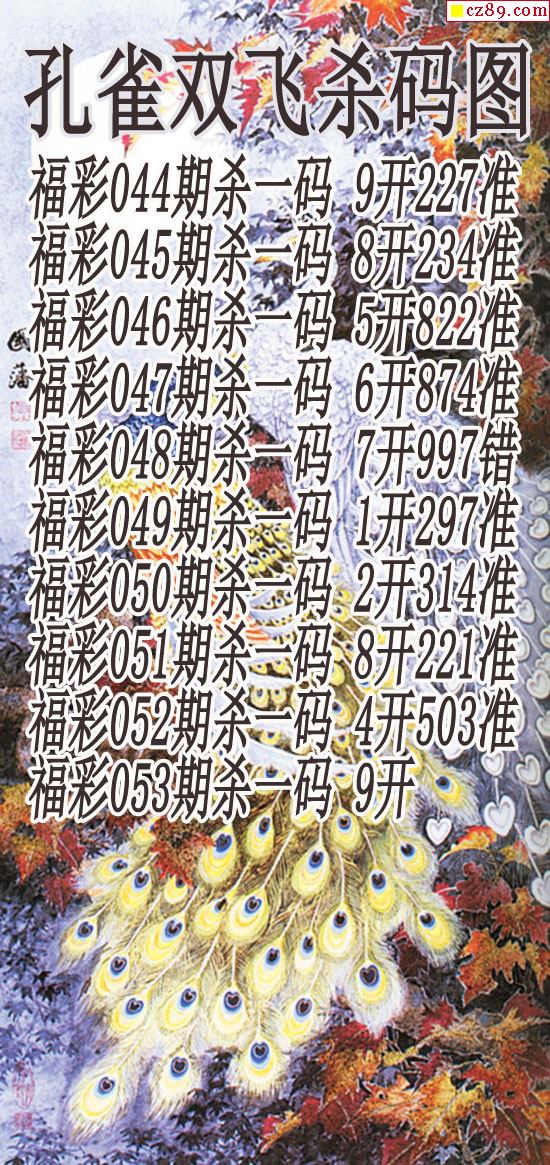 cz89.com
孔雀双飞杀码图
福彩044期杀一码 9开227准
福彩045期杀一码 8开234准
福彩046期杀一码 5开822准
福彩047期杀一码 6开874准
福彩048期杀一码 7开997错
福彩049期杀一码 1开297准
福彩050期杀一码 2开314准
福彩051期杀一码 8开221准
福彩052期杀一码 4开503准
福彩053期杀一码 9开